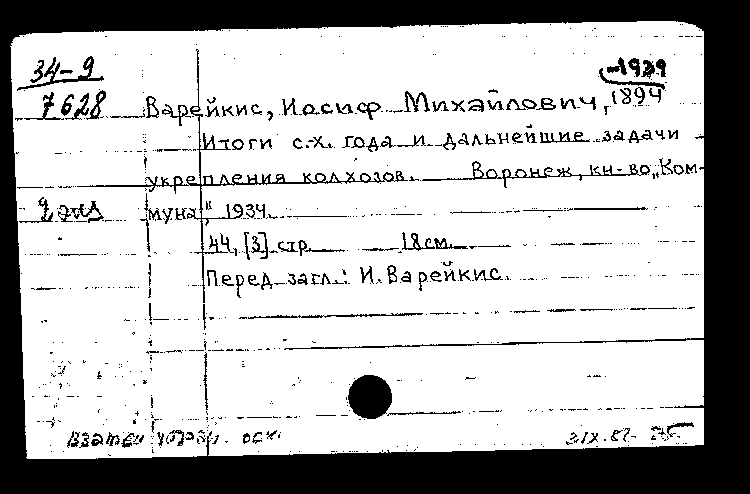 34-9
7628
-1939
Варейкис, Иосиф Михайлович, 1894
Итоги с.-х. года и дальнейшие задачи
укрепления колхозов. Воронеж, кн-во „Ком-
муна", 1934.
2 экз
44, [3] стр. 18 см.
Перед загл.: И. Варейкис.
Взамен